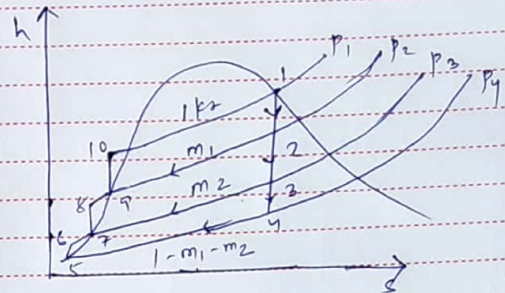 h
P1
P2
P3
P4
1
1 kg
10
m1
2
8
9
m2
3
6
7
4
5
1-m1-m2
s